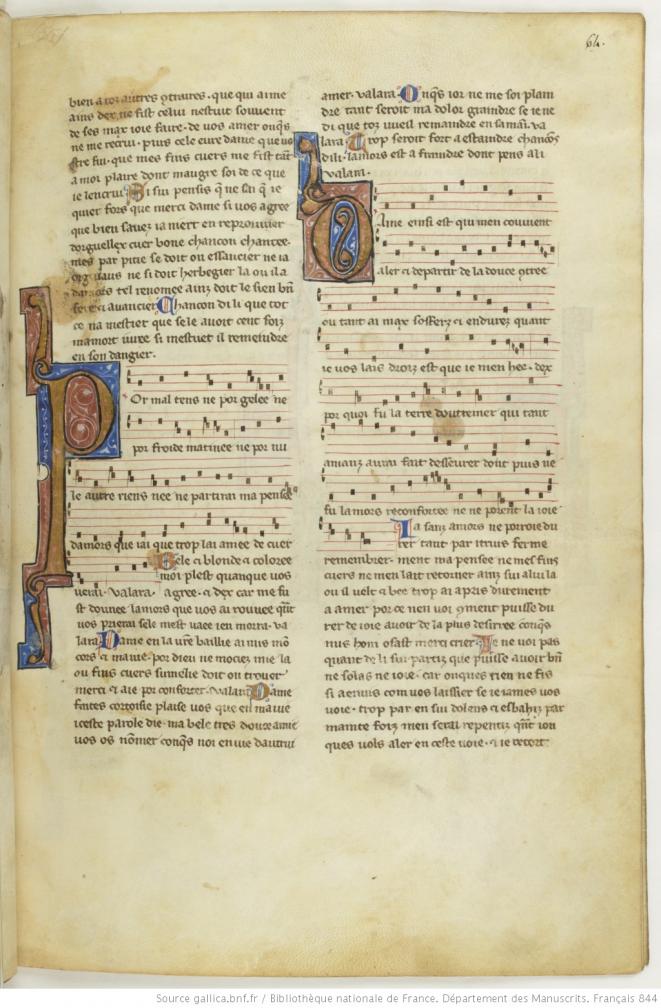 64.
bien a toz autres
que qui aime
ains dex ne fist celui nestuit souvent
de ses max ioie faire. de vos amer onqs
ne me recrui. puis cele eure dame que
stre fui. que mes fins cuers me fist tant
a moi plaire dont maugre soi de ce que
ie
si sui pensis q ne sai q ie
quier fors que merci dame si vos agree
que bien savez
en reprouuier
dorguellex cuer bone chancon chantee.
mes par pitie se doit on essaucier ne ia
orguaus ne si doit herbegier la ou il a
tel renomee ainz doit le sien bn
avancier. Chancon di li que tot
ce na mestier que sele avoit cent foiz
ma mort iuree si mestuet il remeindre
en son dangier.
Por mal tens ne por gelee ne
por froide matinee ne por nu
le autre riens nee ne partirai ma pensee
damors que iai que trop lai amee de cuer
Bele et blonde et coloree
moi plest quanque vos
valara. agree. et dex car me fu
st donee lamors que vos ai rouvee qnt
vos prierai sele mest
ien morra. va
lara. Dame en la vre baillie ai mis mon
cors et ma vie. por dieu ne mociez mie la
ou fins cuers sumelie doit on trouer
merci et aie por conforter. valara. Dame
faites cortoisie plaise vos que en ma vie
iceste parole die. ma bele tres douce amie
vos os nomer conqs noi envie dautrui
amer. valara. Onqs ior ne me soi plain
dre tant seroit ma dolor graindre se ie ne
di que toz vueil remaindre en sa main. va
lara. Trop seroit fort a estaindre chancons
di li. lamors est a
dont pens a li
valara.
Dame einsi est qui men couvient
aler et departir de la douce
ou tant ai max soffers et endurez quant
ie vos lais droiz est que ie men hee. dex
por quoi fu la terre doutremer qui tant
amanz aura fait dessevrer dont puis ne
fu lamors reconfortee ne ne porent la ioie
Ia sanz amors ne porroie du
rer tant par
ferme
remembrer. ment ma pensee ne mes fins
cuers ne men lait retorner ainz sui a lui la
ou il velt et bee trop ai apris durement
a amer por ce nen voi coment puisse du
rer de ioie avoir de la plus desirree conqs
nus hom osast merci crier. Ie ne voi pas
quant de li sui partiz que puisse avoir bn
ne solas ne ioie. car onques rien ne fis
si a enuis com vos laissier se ie iames vos
voie. trop par en sui dolens et esbahiz par
mainte foiz men serai repentiz qnt ion
ques vols aler en ceste voie. et ie recort
Source gallica.bnf.fr / Bibliothèque nationale de France. Département des Manuscrits. Français 844